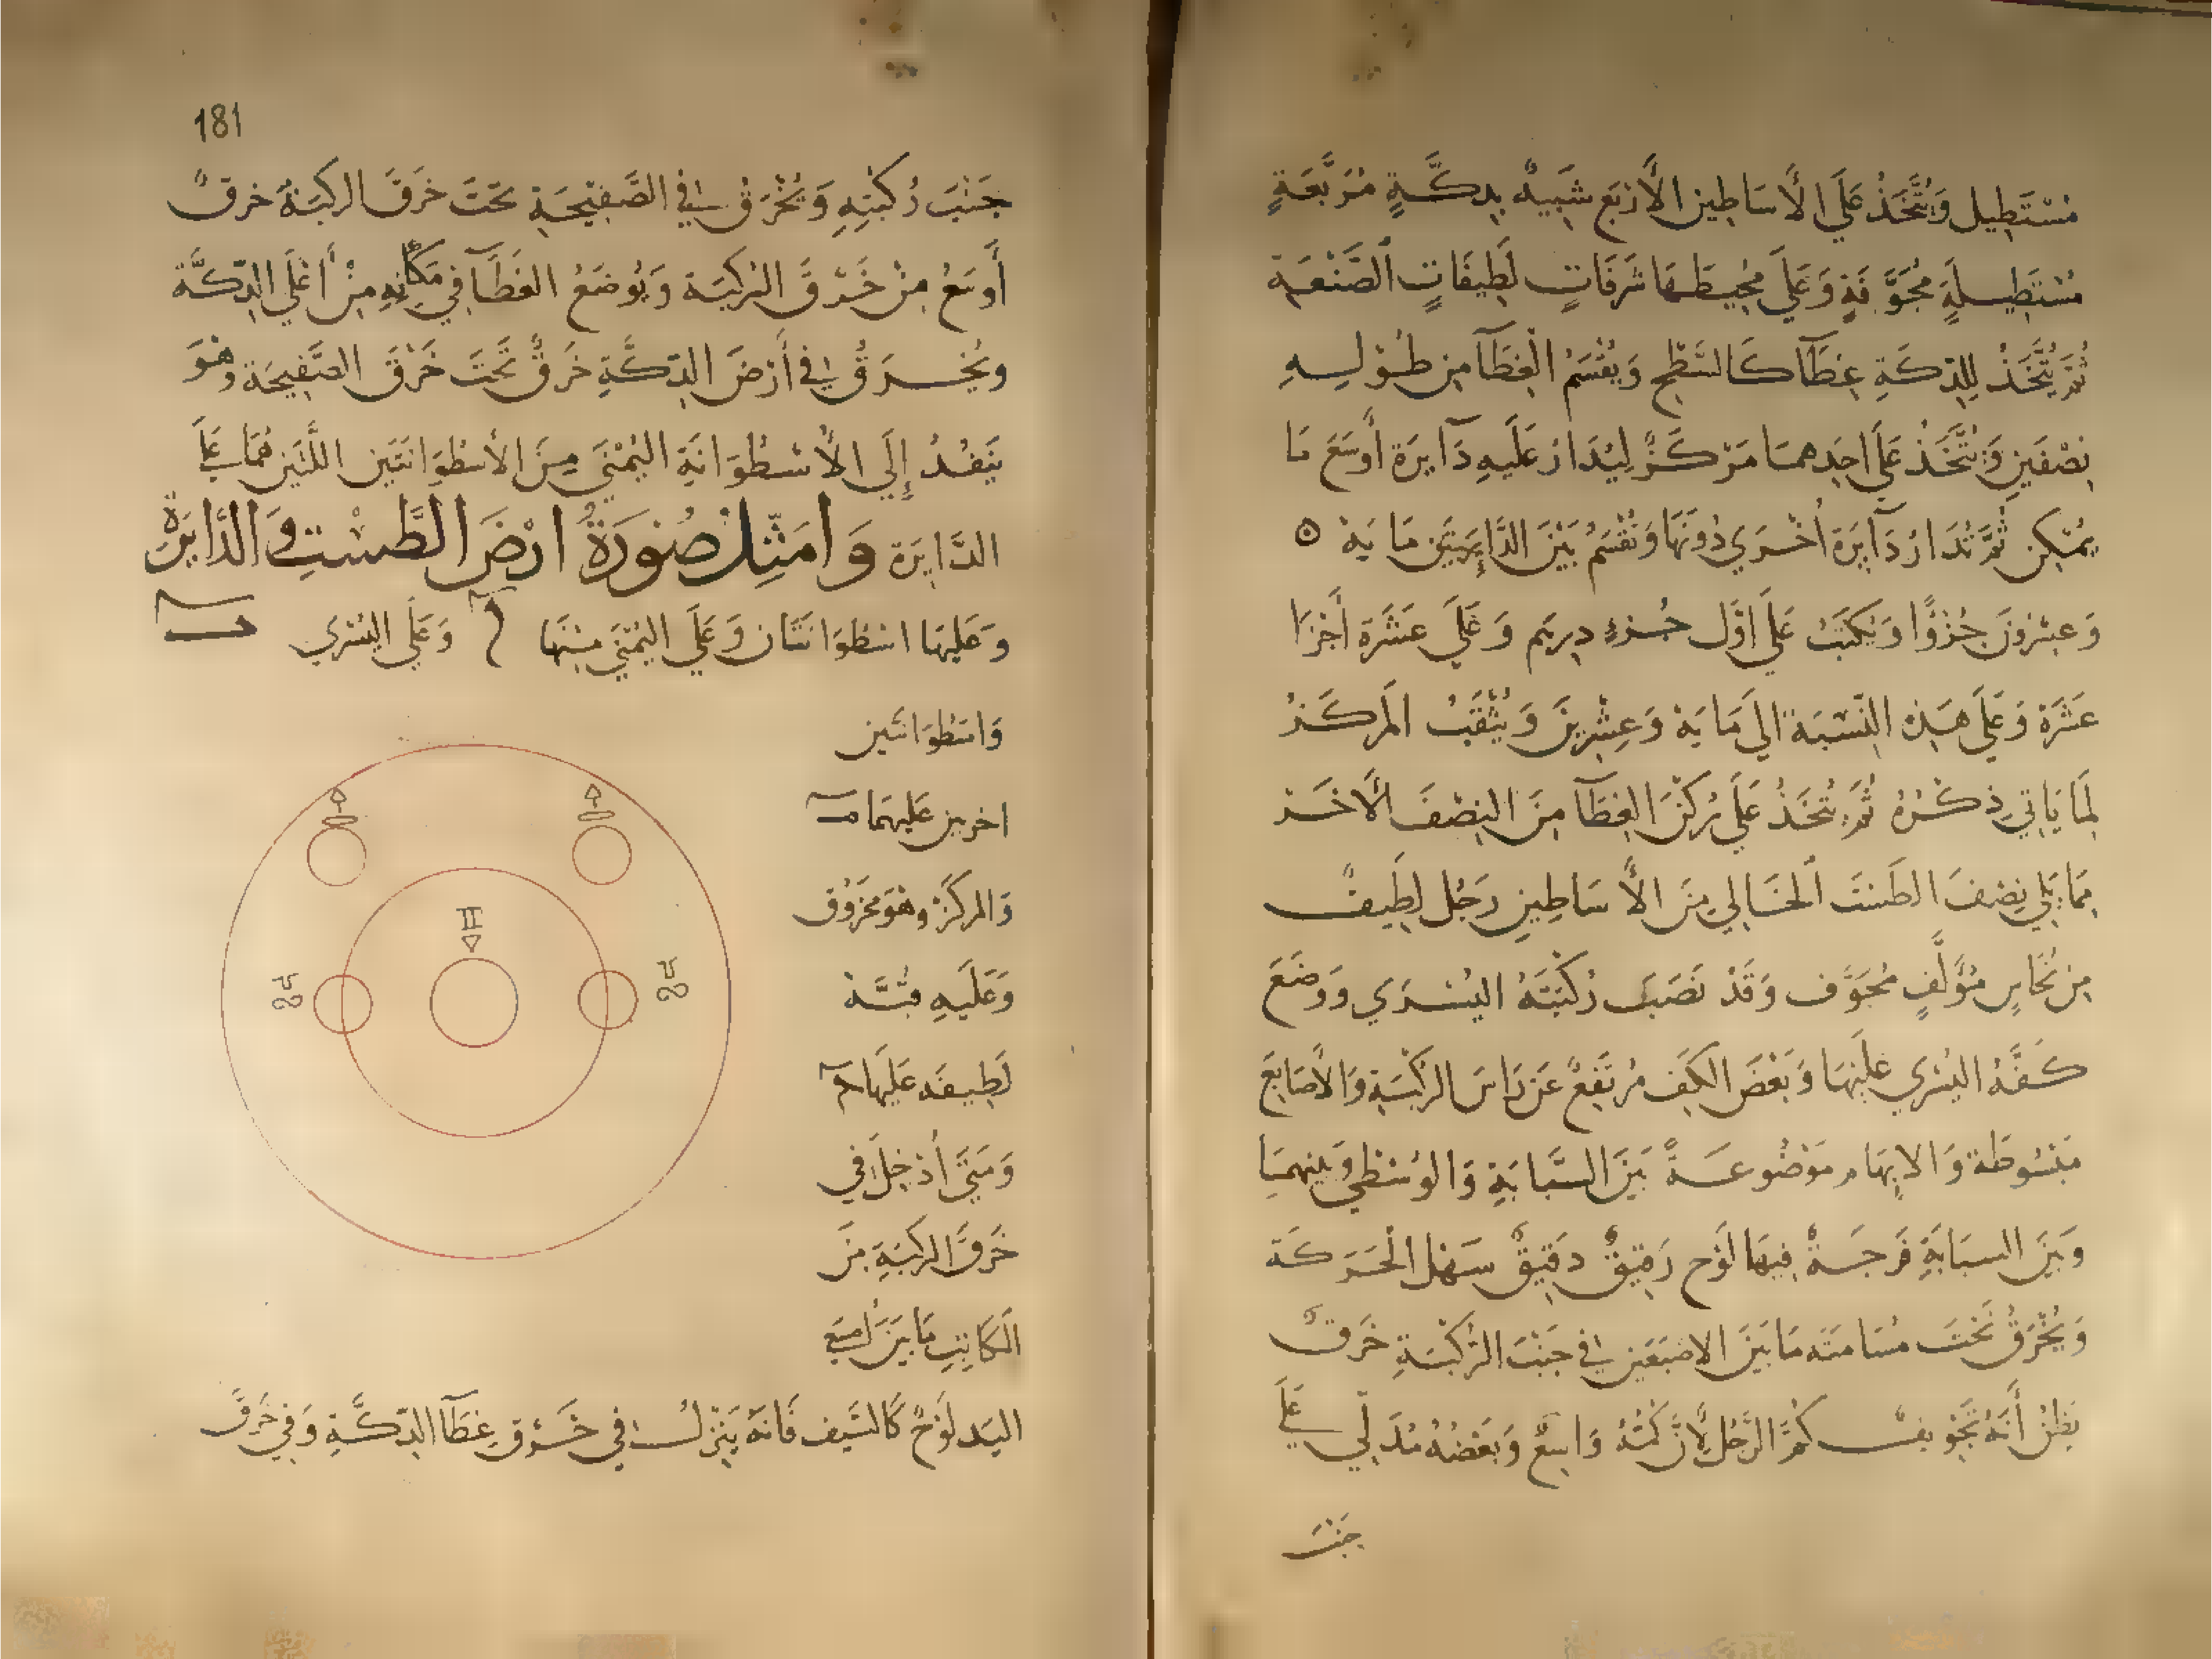 مُسْتَطِيل وَيُتَّخَذُ عَلَي الأَسَاطِين الأَرْبَع شَبِيهٌ بِدِكَّةٍ مُرَبَّعَةٍ
مُسْتَطِيلَةٍ مُجَوَّفَةٍ وَعَلَي مُحِيطِهَا شَرَفَاتٍ لَطِيفَاتٍ الصَّنْعَةِ
ثُمَّ يُتَّخَذُ لِلدِّكَةِ غِطَآ كَالسَّطْحِ وَيُقْسَمُ الْغِطَآ مِن طُولِهِ
نِصْفَينِ وَيُتَّخَذُ عَلَي احَدِهمَا مَرْكَزٌ لِيُدَارُ عَلَيهِ دَآيرَة أَوسَعَ مَا
يُمْكِن ثُمَّ تُدَارُ دَآيَرة أُخْرَي دُونَهَا وَتُقْسَمُ بَيْنَ الدَّايرَتَين مَايَة ه
وَعِشْرُونَ جُزْوًا وَيُكتَبُ عَلَي اوَّل جُزءٍ دِرهَم وَعَلَي عَشَرَة أَجْزَا
عَشَرَة وَعَلَي هَذِه النِّسْبَة الي مَايَة وَعِشْرِينَ وَيُثْقَبُ المَركَزُ
لِمَا يَاتِي ذِكْرُهُ ثُمَّ يُتَّخَذُ عَلَي رُكْنِ الغِطَآ مِنَ النِصْفِ الأَخَر
مِمَّا يَلِي نِصْفَ الطَسْتَ الخَالِي مِنَ الأَسَاطِينِ رَجُل لَطِيفٌ
مِن نُحَاسٍ مُؤَلَّفٍ مُجَوَّف وَقَدْ نَصَبَ رُكْبَتَهُ اليُسْرَي وَوَضَعَ
كَفَّهُ اليُسْرَي عَلَيْهَا وَبَعْضَ الكَفِ مُرتَفِعٌ عَن رَاسَ الرُكْبَةِ وَالأَصَابِعَ
مَبْسُوطَة وَالابهَام مَوْضُوعَةً بَيْنَ السَّبَابَةِ وَالوُسْطَي وَبَينهمَا
وَبَيْنَ السبَابَةِ فَرجَةٌ فِيهَا لَوْح رَقِيقٌ دَقِيقٌ سَهْل الْحَرَكَة
وَيُخْرَقُ تَحْتَ مُسَامَتَه مَا بَيْنَ الاصْبَعَين في جَنْبَ الرُّكْبَةِ خَرقٌ
يُظنُّ أَنَّهُ تَجْوِيفُ كُمِّ الرَّجُلِ لأَنَّ كُمَّهُ وَاسِعٌ وَبَعْضُهُ مُدَلّي عَلَي
جَنْبَ
181
جَنْبَ رُكْبَتِهِ وَيُخْرَقُ في الصَّفِيْحَةِ تَحْتَ خَرْقَ الركبَةُ خرقٌ
أَوسَعُ مِنْ خَرْقَ الرُكبَة وَيُوضَعُ الغِطَآ في مَكَانِهِ مِنْ أَعْلَي الدِّكَّة
ويُخْرَقُ في أَرْضَ الدِّكَّةِ خَرقٌ تَحْتَ خَرْقَ الصَّفِيحَة وَهُوَ
يَنفُذُ إِلَي الأُسْطُوَانَةِ اليُمْنَي مِنَ الأُسْطُوَانَتَين اللَّتَين هُمَا عَلَي
الدَّايرَة وَامَثِّلُ صُورَةُ ارْضَ الطَّسْتِ وَالدَّايَرةُ
وَعَلَيهَا اسْطُوَانَتَان وَعَلَي اليُمْنَي مِنْهَا آ وَعَلَي اليُسْرَي ب
وَاسْطُوَانَتَين
اخرين عَلَيهمَا
وَالمركَزُ وهُوَ مَخرُوْق
وَعَلَيهِ قُبَّة
لَطِيفَه عَلَيهَا
وَمَتَي أُدْخِلَ في
خَرقَ الركبَةِ مِنَ
الكَاتِبِ مَا بَيْنَ اصبَعي
اليَد لَوْحٌ كَالسَّيف فَانَهُ يَنْزلُ في خَرْقِ غِطَآ الدِّكَّةِ وَفي خَرقَ